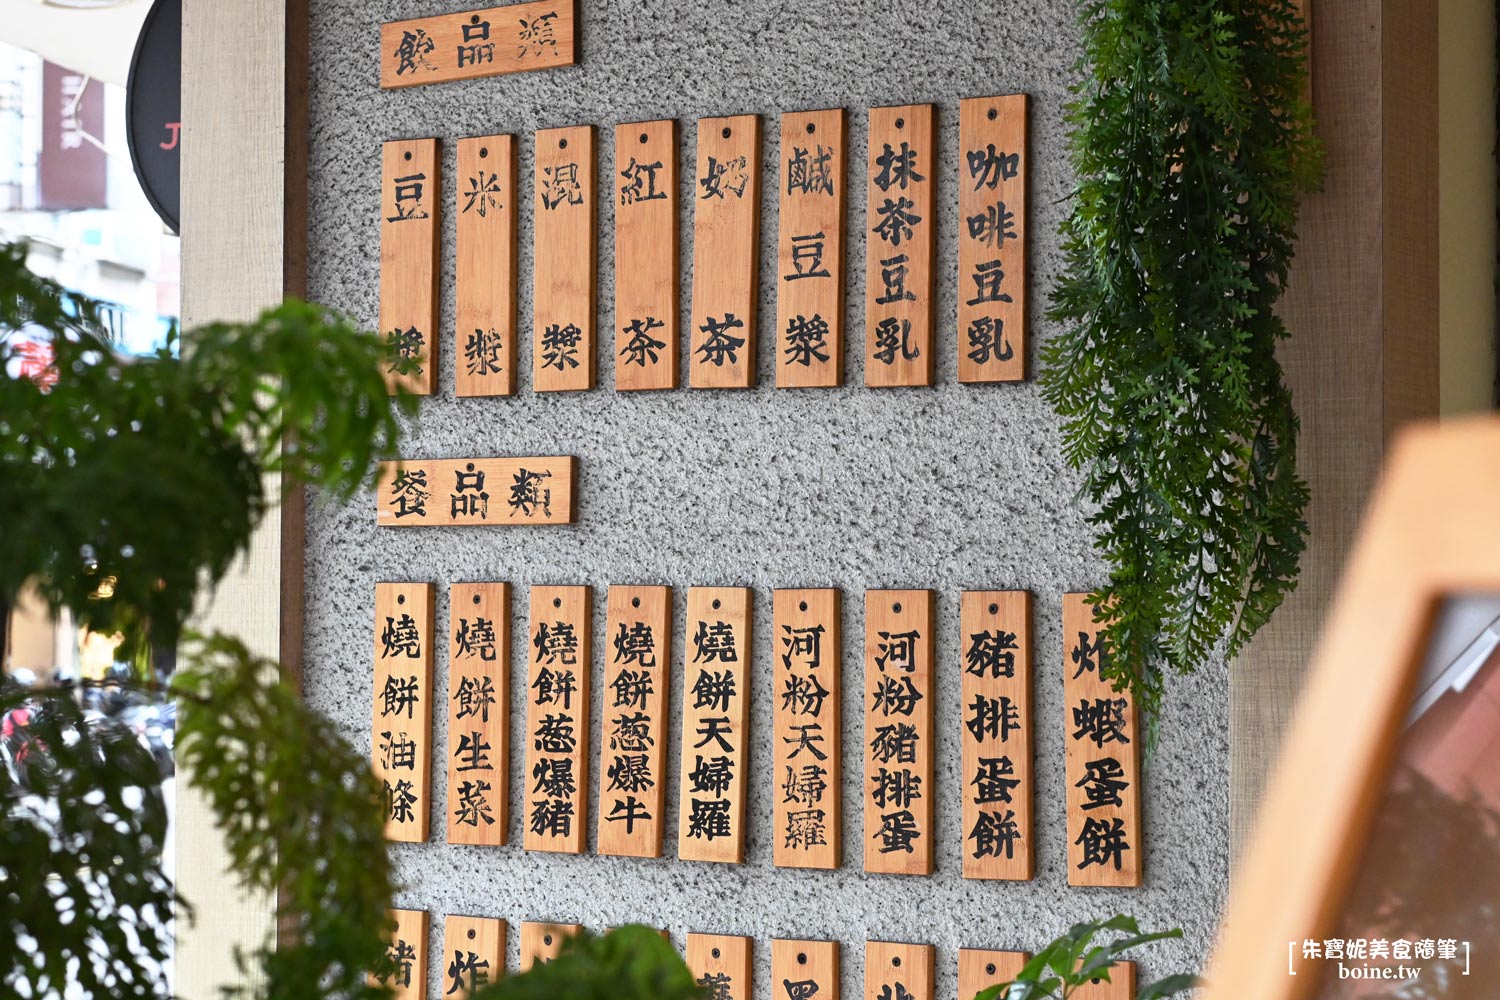 飲品類
豆漿
米漿
混漿
紅茶
奶茶
鹹豆漿
抹茶豆乳
咖啡豆乳
餐品類
燒餅油條
燒餅生菜
燒餅葱爆豬
燒餅葱爆牛
燒餅天婦羅
河粉天婦羅
河粉豬排蛋
豬排蛋餅
炸蝦蛋餅
豬
炸
朱寶妮美食隨筆
boine.tw